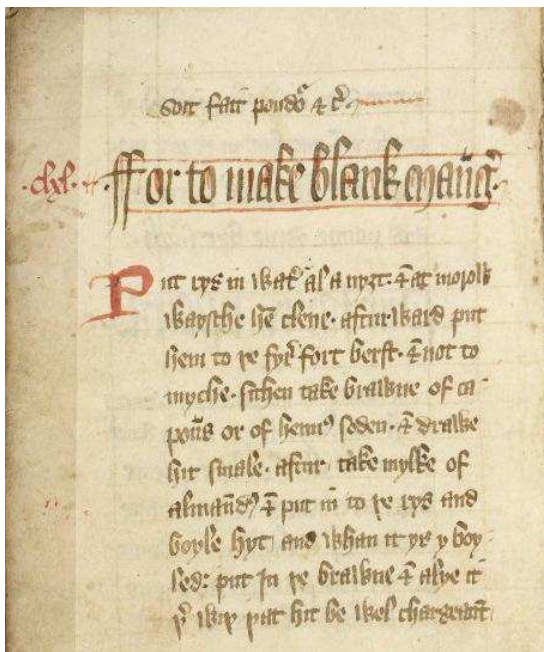 soit fait poudr & c̃
ffor to make blank mang̃
Put rys in wat̉ al a nyȝt · & at morow
waysche hē clene · aftur ward put
hem to þe fyr̉ fort berst · & not to
myche · sithen take brawne of ca
poūs or of henn̉ soden · & drawe
hit smale · aftur take mylke of
almaūd̉ & put in to þe rys and
boyle hyt and whan it ys y boy
led : put In þe brawne & alye it
þ̉ wiþ þat hit be wel chargeaūt